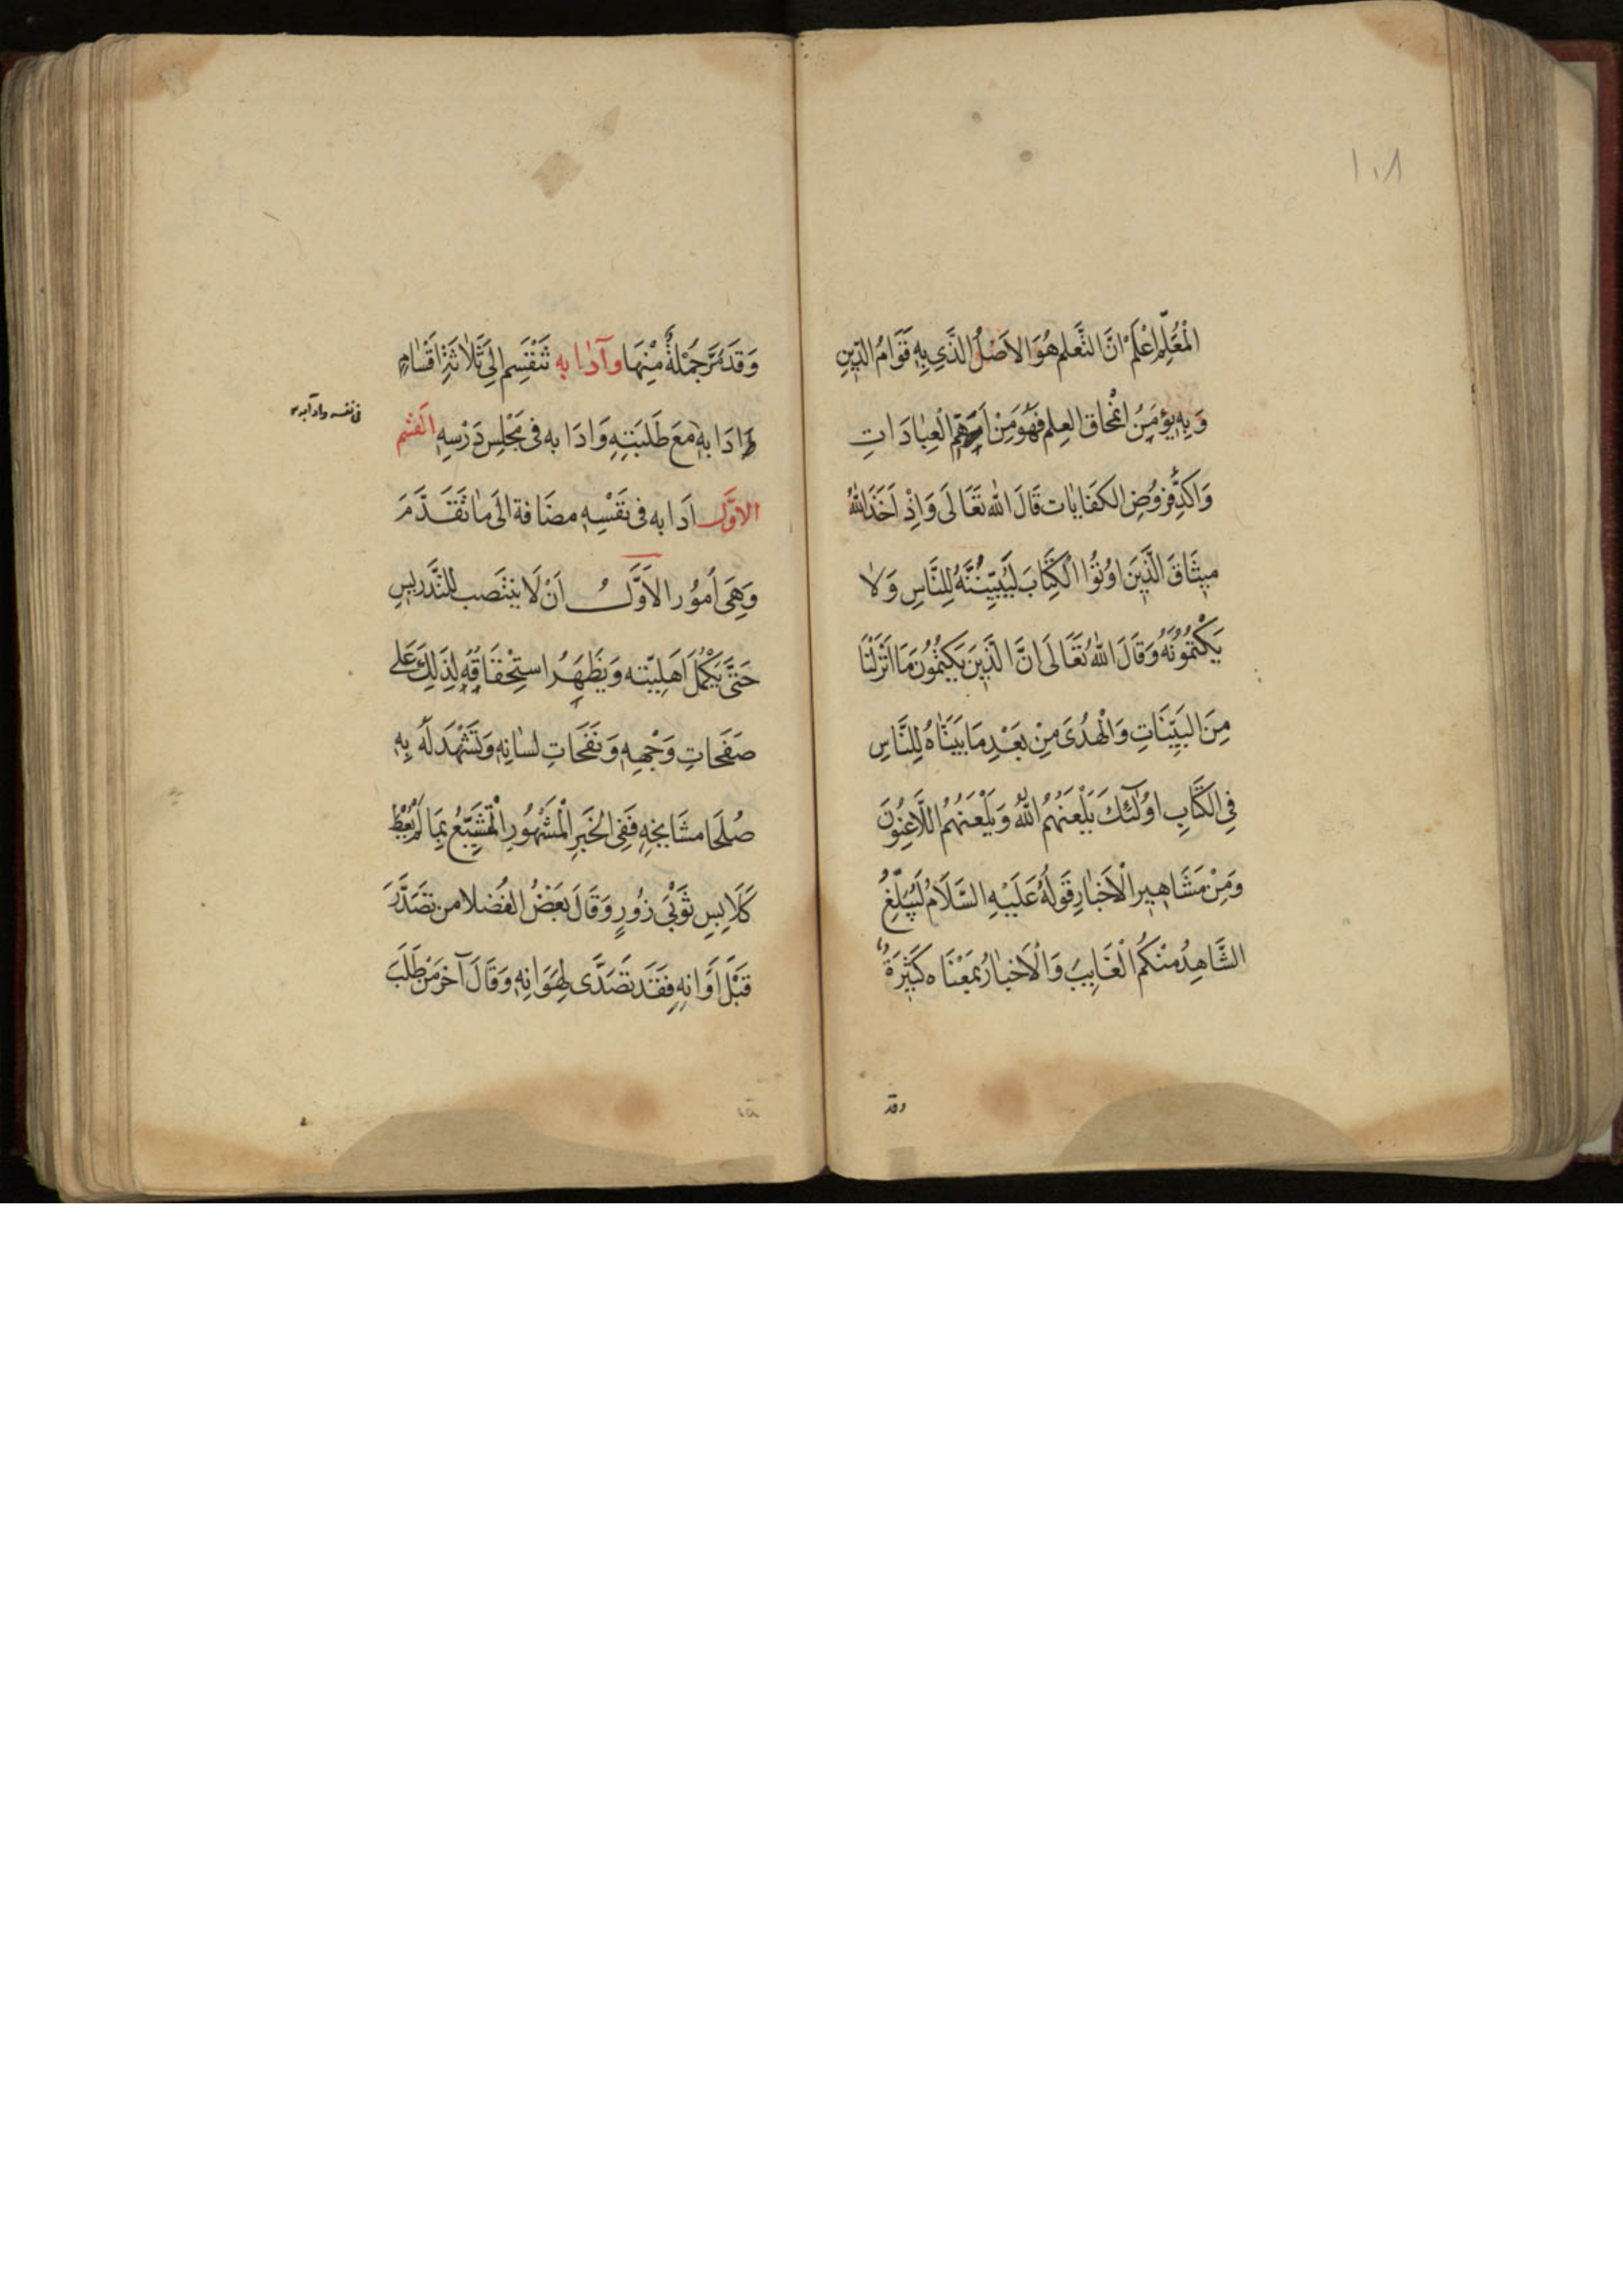 ١٠٨
الْمُعَلِّمِ اعْلَمْ انَّ التَّعلم هُوَ الاَصْلُ الذَّى بِهِ قَوَامُ الدّينِ
وَبِهِ يؤمَنُ امْحاق العِلم فَهُوَ مِنْ اَهَمِّ الْعِبٰادَاتِ
وَاكَدِ فرُوُضِ الكفَايٰات قَالَ اللّٰه تَعَالَى وَاِذْ اَخَذَ اللّٰهُ
ميِثَاقَ الَّذَيِنَ اوُتوُا الْكِتَابَ لَيُبَيّنُنَّهُ لِلنَّاسِ وَلاٰ
يَكْتُموُنَهُ وَقَالَ اللّٰهُ تَعَالَى انَّ الَّذَيِنَ يَكتُموُنَ مَا اَنْزَلْنَا
مِنَ البَيِّنَاتِ وَالْهُدَىَ مِنْ بَعَدِ مَا بَيَنَّاهُ لِلنَّاسِ
فِى الكَتَابِ اوُلٰئكَ يَلْعَنُهُمُ اللّٰهُ وَيَلْعَنُهُمُ اللَّاعِنُونَ
وَمِنْ مَشَاهيِرِ الْاَخبٰارِ قَولُهُ عَلَيْهِ السَّلَامُ لَيُبَلِّغِ
الشَّاهِدُ مِنْكُم الْغَايِبَ وَالْاَخبٰارُ بمَعْنَاه كَثيِرَةٌ
وقد
وَقَدْ مَرَّ جُمْلَةٌ مِنْهَا وآدٰابه تَنْقَسِم اِلَى ثَلٰاثَةِ اَقْسٰامٍ
فى نفسه وادآبه
ادَابهِ مَعَ طَلَبَتِهِ وَادَابه فى مَجْلِسِ دَرْسِهِ القسْم
الاوَّل ادَابه فى نَفْسِهِ مضَافة الَى مٰا تَقَدَّمَ
وَهِىَ اُموُر الاَوَّلُ اَنْ لَا ينتَصب للتَّدريسِ
حَتىَّ يَكْمُلَ اَهَلِيّته وَيَظْهَرُ استِحْقَاقُهِ لِذَلِكَ عَلى
صَفَحَاتِ وَجْهِهِ وَنَفَحَاتِ لسٰانِهِ وَتَشْهَد لَهُ بِهِ
صُلَحَا مشَايِخِهِ فَفِى الخَبَرِ الْمشَهُورِ الْمُتَشَبّعُ بِمَا لَمْ يُعْطَ
كَلَابِسِ ثَوْبَىْ زُورٍ وَقَالَ بَعْضُ الفُضَلا من تَصَدَّرَ
قَبْلَ اَوَانِهِ فَقَد تَصَدَّى لِهَوَانِهِ وَقَالَ آخَرَ مَنْ طَلَبَ